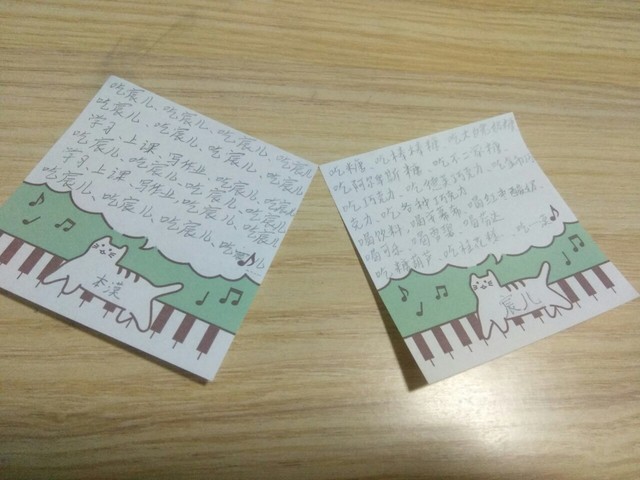 吃宸儿、吃宸儿、吃宸儿、吃宸儿
吃宸儿、吃宸儿、吃宸儿、吃宸儿
学习、上课、写作业、吃宸儿、吃宸儿
吃宸儿、吃宸儿、吃宸儿、吃宸儿
学习、上课、写作业、吃宸儿、吃宸儿
吃宸儿、吃宸儿、吃宸儿、吃宸儿
本淏
吃糖、吃棒棒糖、吃大白兔奶糖
吃阿尔卑斯糖、吃不二家糖
吃巧克力、吃德芙巧克力、吃
克力、吃各种巧克力
喝饮料、喝洋葡萄、喝红
喝可乐、喝雪碧、喝芬达
吃糖葫芦、吃桂花糕、吃一
宸儿